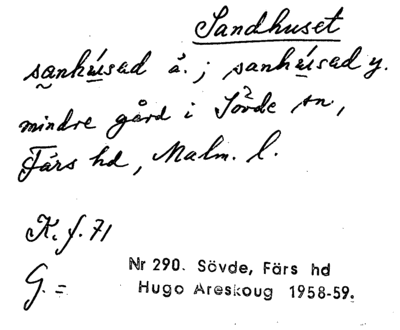 Sandhuset
sanhúsad ä.; sanhúsad y.
mindre gård i Sövde sn,
Färs hd, Malm. l.
K. f. 71
G. =
Nr 290. Sövde, Färs hd
Hugo Areskoug 1958-59.